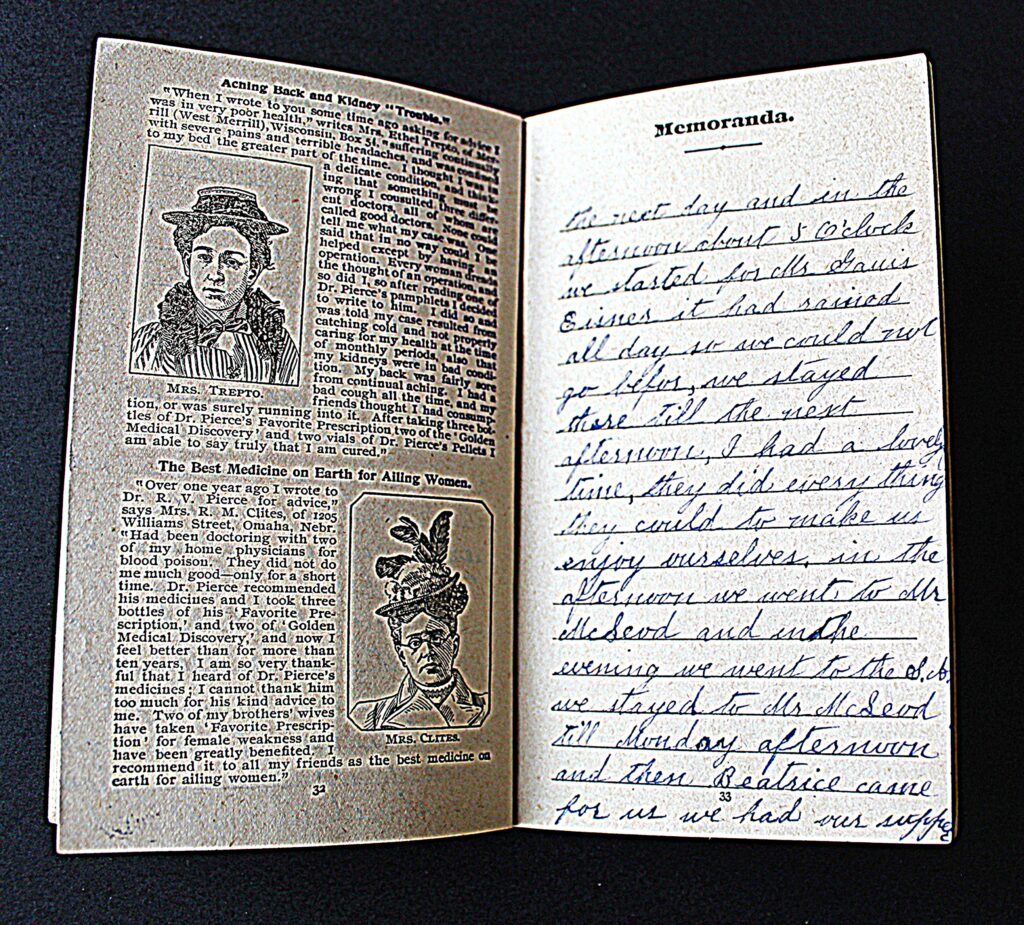 Aching Back and Kidney "Trouble."
"When I wrote to you some time ago asking for advice I
was in very poor health," writes Mrs. Ethel Trepto, of Mer-
rill (West Merrill), Wisconsin, Box 54, "suffering continually
with severe pains and terrible headaches, and was confined
to my bed the greater part of the time. I thought I was in
a delicate condition, and think-
ing that something must be
wrong I consulted three differ-
ent doctors, all of whom are
called good doctors. None could
tell me what my case was. One
said that in no way could I be
helped except by having an
operation. Every woman dreads
the thought of an operation, and
so did I, so after reading one of
Dr. Pierce's pamphlets I decided
to write to him. I did so and
was told my case resulted from
catching cold and not properly
caring for my health at the time
of monthly periods, also that
my kidneys were in bad condi-
tion. My back was fairly sore
from continual aching. I had a
bad cough all the time, and my
friends thought I had consump-
MRS. TREPTO.
tion, or was surely running into it. After taking three bot-
tles of Dr. Pierce's Favorite Prescription, two of the 'Golden
Medical Discovery' and two vials of Dr. Pierce's Pellets I
am able to say truly that I am cured."
The Best Medicine on Earth for Ailing Women.
"Over one year ago I wrote to
Dr. R. V. Pierce for advice,"
says Mrs. R. M. Clites, of 1205
Williams Street, Omaha, Nebr.
"Had been doctoring with two
of my home physicians for
blood poison. They did not do
me much good—only for a short
time. Dr. Pierce recommended
his medicines and I took three
bottles of his 'Favorite Pre-
scription,' and two of 'Golden
Medical Discovery,' and now I
feel better than for more than
ten years. I am so very thank-
ful that I heard of Dr. Pierce's
medicines; I cannot thank him
too much for his kind advice to
me. Two of my brothers' wives
have taken 'Favorite Prescrip-
tion' for female weakness and
have been greatly benefited. I
MRS. CLITES.
recommend it to all my friends as the best medicine on
earth for ailing women."
32
Memoranda.
the next day and in the
afternoon about 5 O'clock
we started for Mr
Eisner it had rained
all day so we could not
go befor, we stayed
there till the next
afternoon, I had a lovely
time, they did everything
they could to make us
enjoy ourselves. in the
afternoon we went to Mr
McLeod and in the
evening we went to the S.A.
we stayed to Mr McLeod
till Monday afternoon
and then Beatrice came
33
for us we had our supper